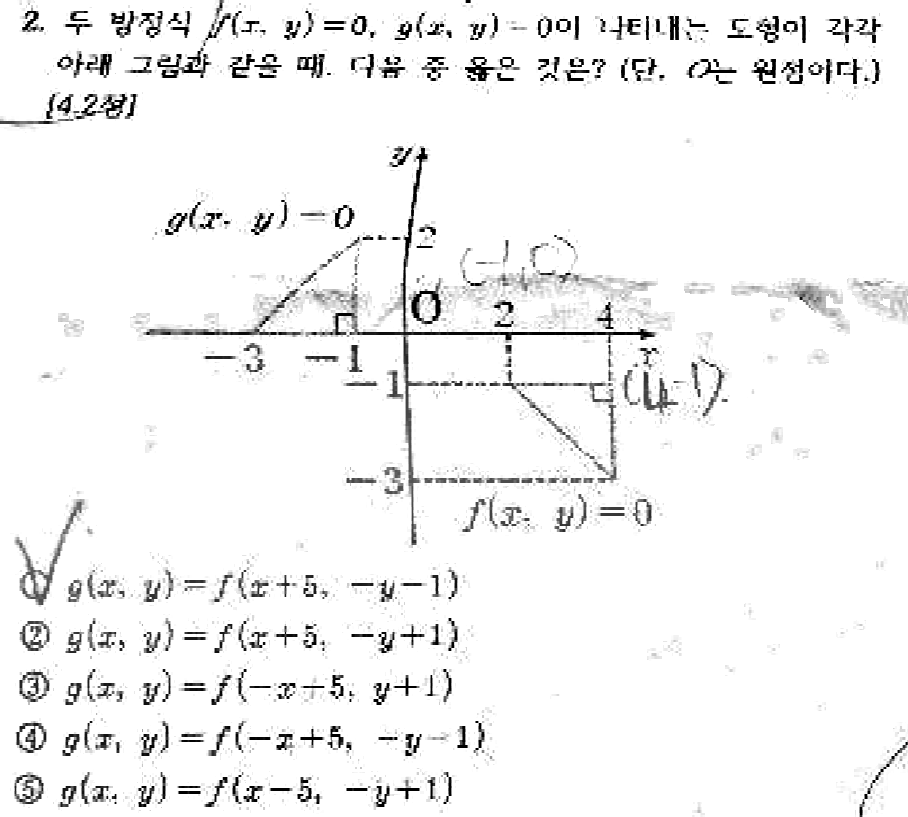 2. 두 방정식 f(x, y)=0, g(x, y)=0이 나타내는 도형이 각각
아래 그림과 같을 때, 다음 중 옳은 것은? (단, O는 원점이다.)
[4.2점]
y
g(x, y)=0
2
(-1,0)
O
2
4
x
-3
-1
-1
(4,-1)
-3
f(x, y)=0
① g(x, y)=f(x+5, -y-1)
② g(x, y)=f(x+5, -y+1)
③ g(x, y)=f(-x+5, y+1)
④ g(x, y)=f(-x+5, -y-1)
⑤ g(x, y)=f(x-5, -y+1)